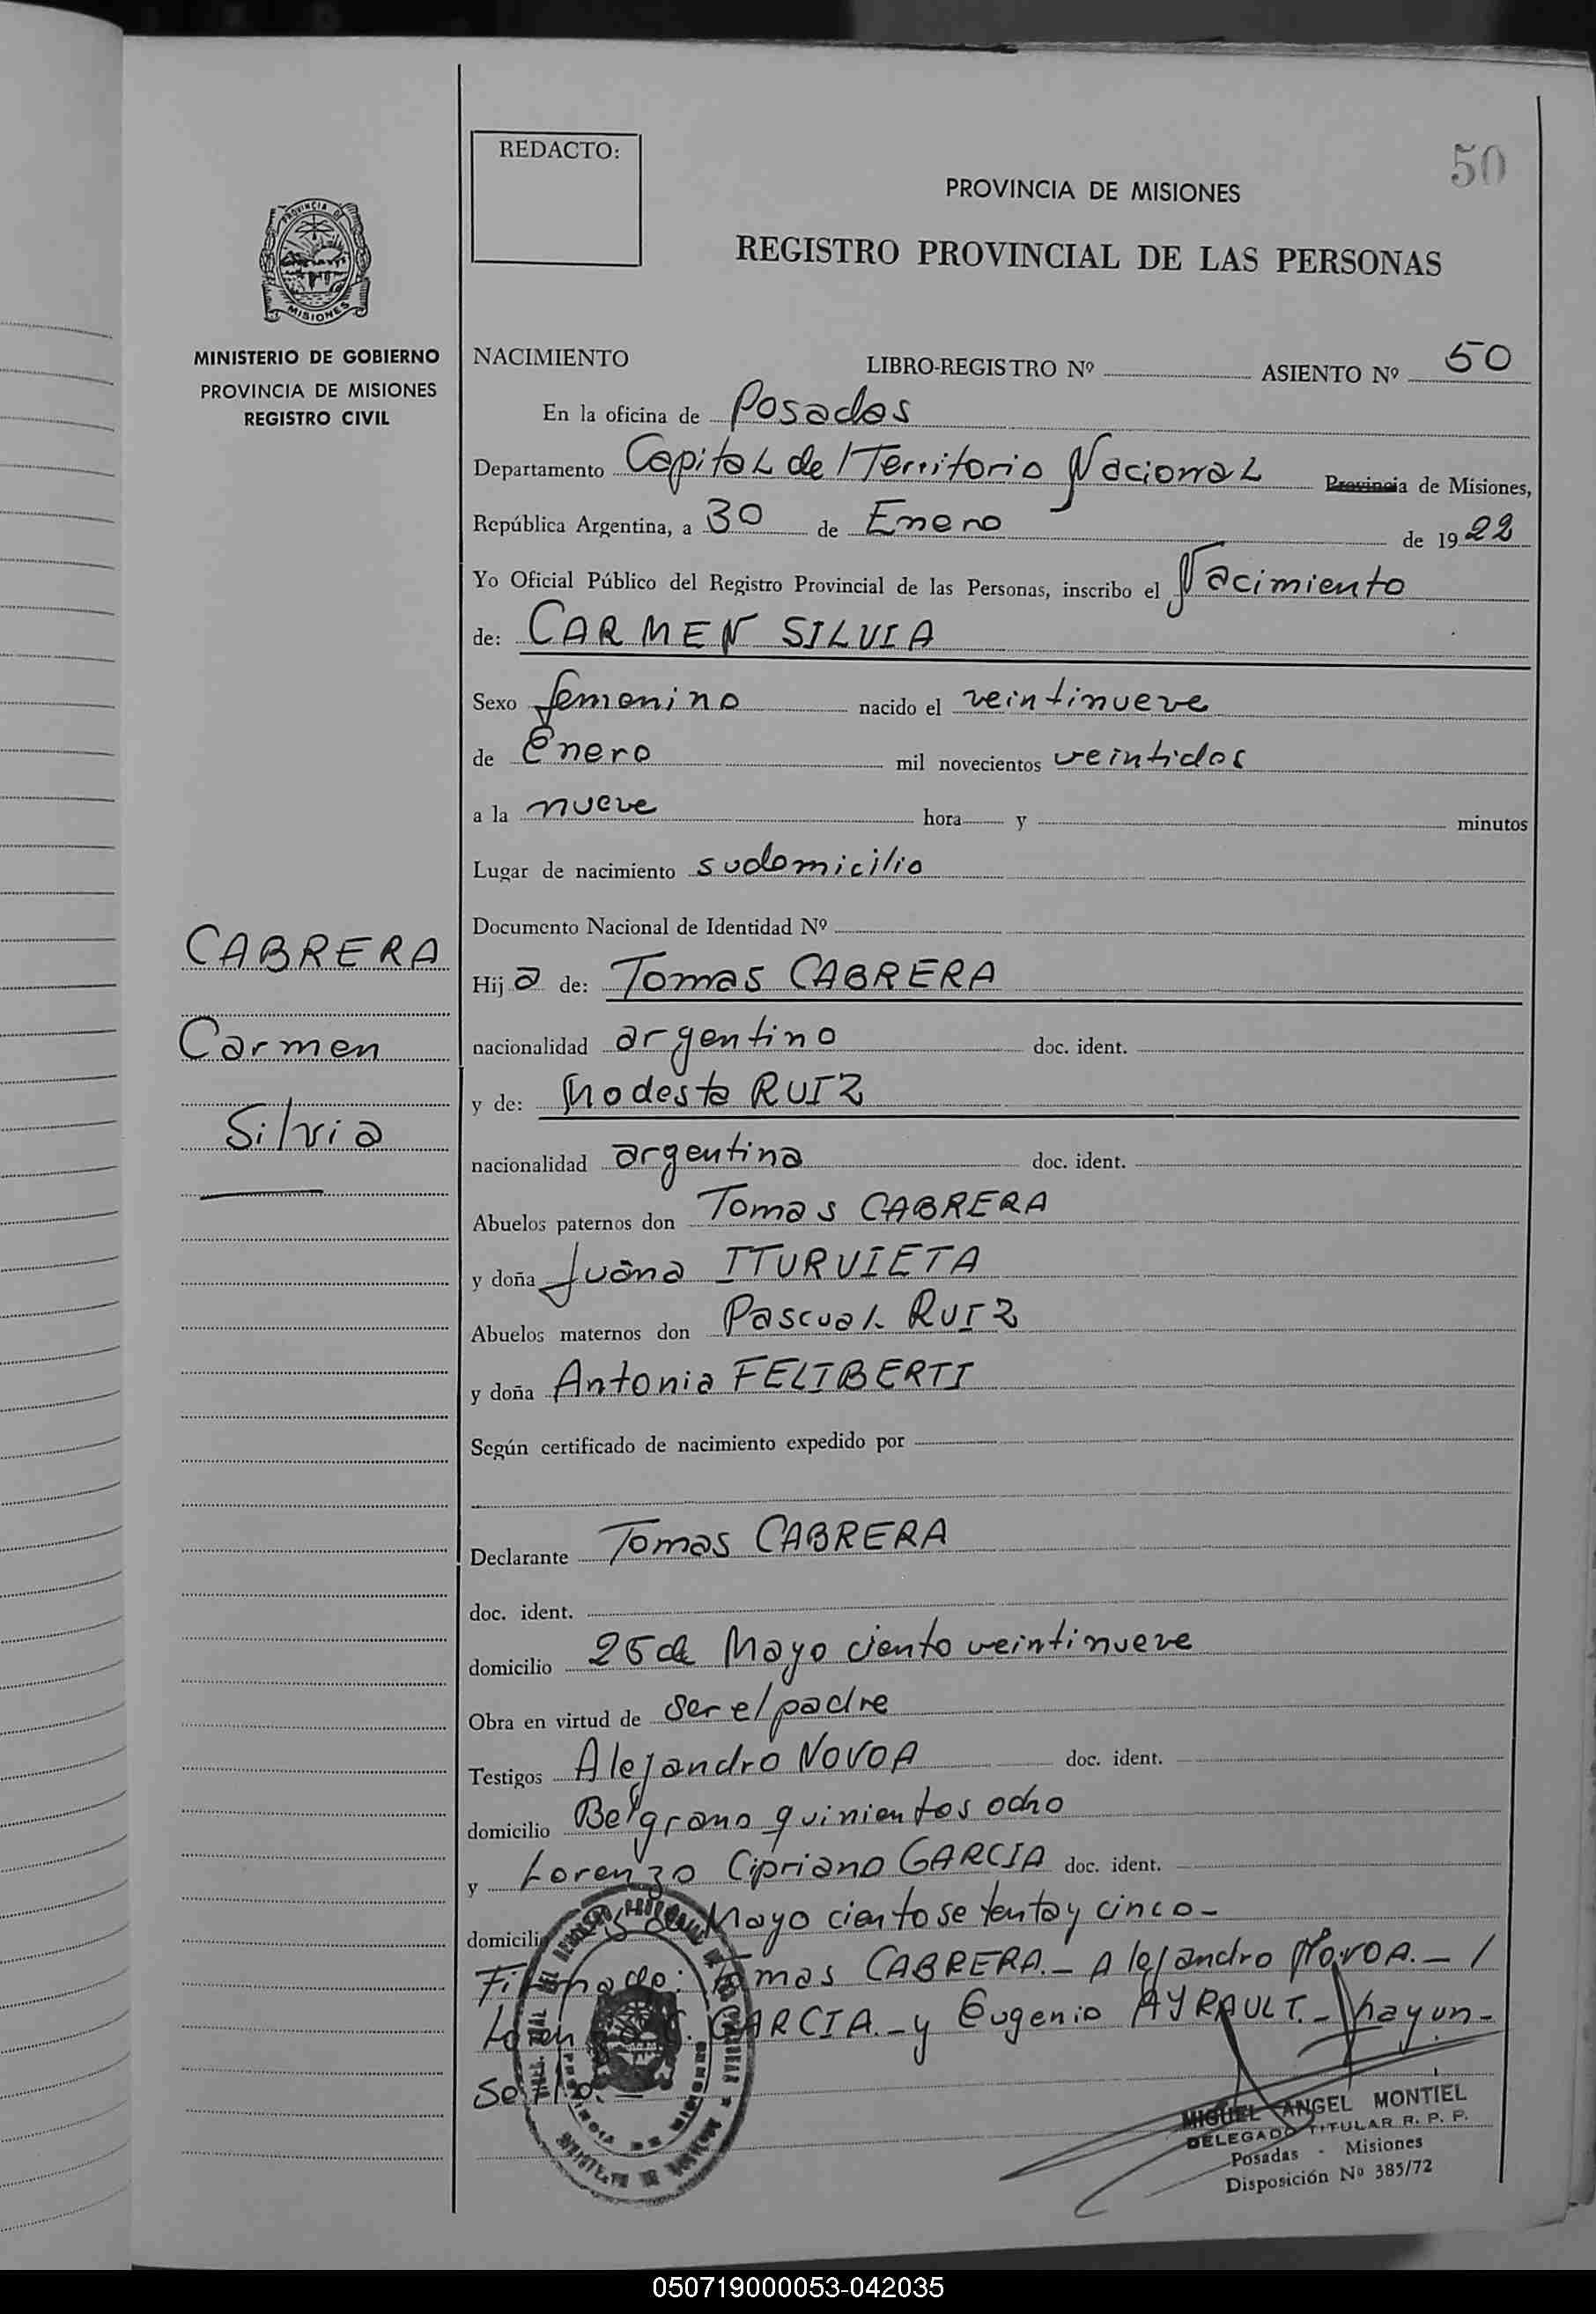 REDACTO:
50
PROVINCIA DE MISIONES
REGISTRO PROVINCIAL DE LAS PERSONAS
PROVINCIA DE
MISIONES
MINISTERIO DE GOBIERNO
PROVINCIA DE MISIONES
REGISTRO CIVIL
NACIMIENTO LIBRO-REGISTRO Nº ASIENTO Nº 50
En la oficina de Posadas
Departamento Capital del Territorio Nacional Provincia de Misiones,
República Argentina, a 30 de Enero de 1922
Yo Oficial Público del Registro Provincial de las Personas, inscribo el Nacimiento
de: CARMEN SILVIA
Sexo femenino nacido el veintinueve
de Enero mil novecientos veintidos
a la nueve hora y minutos
Lugar de nacimiento su domicilio
Documento Nacional de Identidad Nº
CABRERA
Carmen
Silvia
Hija de: Tomas CABRERA
nacionalidad argentino doc. ident.
y de: Modesta RUIZ
nacionalidad argentina doc. ident.
Abuelos paternos don Tomas CABRERA
y doña Juana ITURVIETA
Abuelos maternos don Pascual RUIZ
y doña Antonia FELIBERTI
Según certificado de nacimiento expedido por
Declarante Tomas CABRERA
doc. ident.
domicilio 25 de Mayo ciento veintinueve
Obra en virtud de ser el padre
Testigos Alejandro NOVOA doc. ident.
domicilio Belgrano quinientos ocho
y Lorenzo Cipriano GARCIA doc. ident.
domicilio 25 de Mayo ciento setenta y cinco-
Firmado: Tomas CABRERA.- Alejandro NOVOA.- /
Lorenzo C. GARCIA.- y Eugenio AYRAULT.- hay un-
sello.-
MIGUEL ANGEL MONTIEL
DELEGADO TITULAR R. P. P.
Posadas - Misiones
Disposición Nº 385/72
050719000053-042035